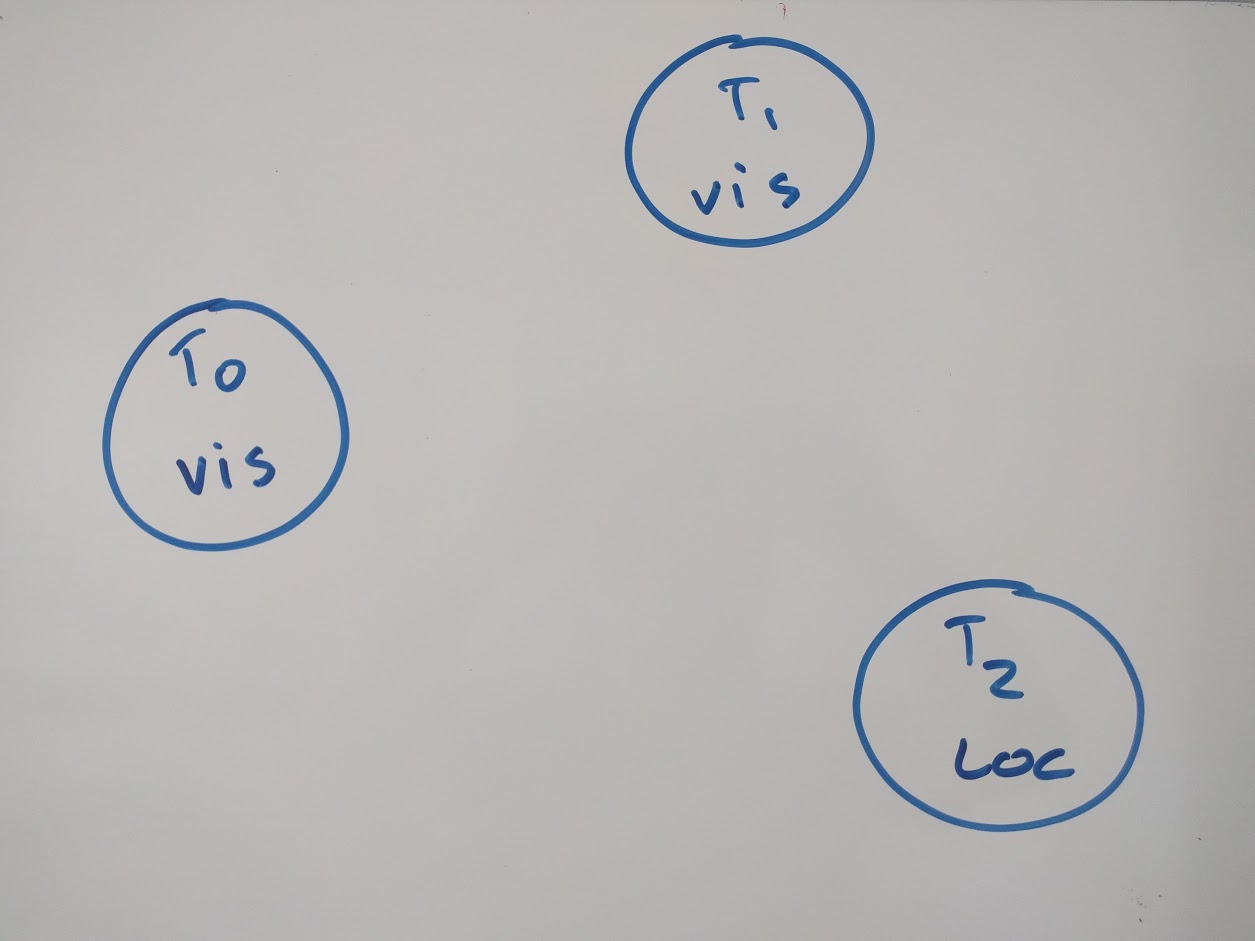 T1
vis
T0
vis
T2
Loc